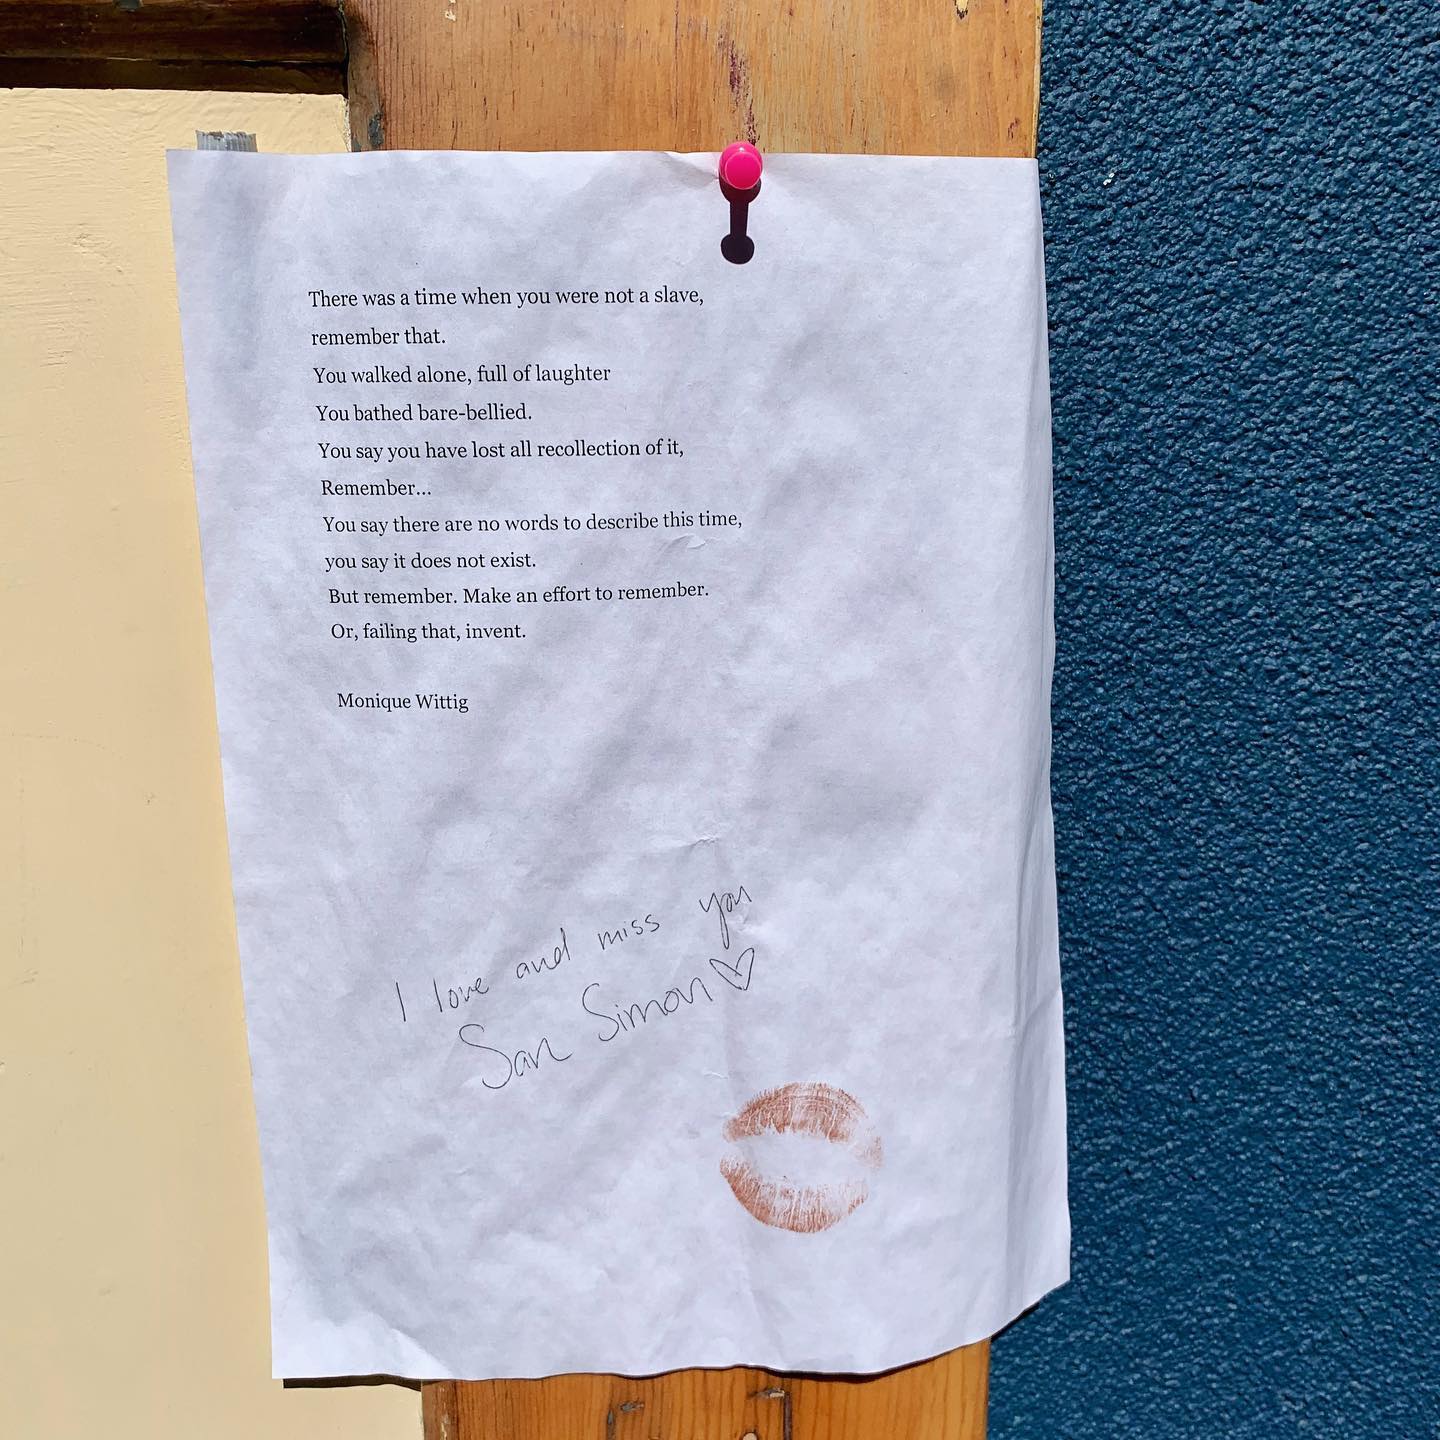 There was a time when you were not a slave,
remember that.
You walked alone, full of laughter
You bathed bare-bellied.
You say you have lost all recollection of it,
Remember...
You say there are no words to describe this time,
you say it does not exist.
But remember. Make an effort to remember.
Or, failing that, invent.
Monique Wittig
I love and miss you
San Simon♡